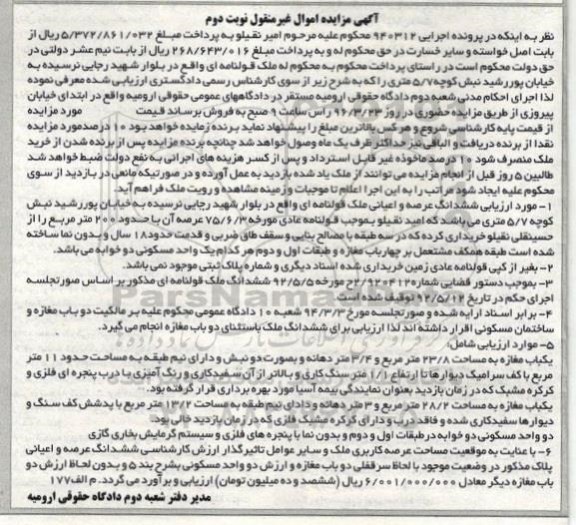 آگهی مزایده اموال غیرمنقول نوبت دوم
نظر به اینکه در پرونده اجرایی ۹۴۰۳۱۲ محکوم علیه مرحوم امیر نقیلو به پرداخت مبلغ ۵/۳۷۲/۸۶۱/۰۳۲ ریال از
بابت اصل خواسته و سایر خسارت در حق محکوم له و به پرداخت مبلغ ۲۶۸/۶۴۳/۰۱۶ ریال از بابت نیم عشر دولتی در
حق دولت محکوم است در راستای پرداخت محکوم به محکوم له ملک قولنامه ای واقع در بلوار شهید رجایی نرسیده به
خیابان پوررشید نبش کوچه ۵/۷ متری را که به شرح زیر از سوی کارشناس رسمی دادگستری ارزیابی شده معرفی نموده
لذا اجرای احکام مدنی شعبه دوم دادگاه حقوقی ارومیه مستقر در دادگاههای عمومی حقوقی ارومیه واقع در ابتدای خیابان
پیروزی از طریق مزایده حضوری در روز ۹۶/۳/۲۳ راس ساعت ۹ صبح به فروش برساند قیمت مورد مزایده
از قیمت پایه کارشناسی شروع و هر کس بالاترین مبلغ را پیشنهاد نماید برنده مزایده خواهد بود ۱۰ درصد مورد مزایده
نقدا از برنده دریافت و الباقی نیز حداکثر ظرف یک ماه وصول خواهد شد چنانچه برنده مزایده پس از برنده شدن از خرید
ملک منصرف شود ۱۰ درصد ماخوذه غیر قابل استرداد و پس از کسر هزینه های اجرائی به نفع دولت ضبط خواهد شد
طالبین ۵ روز قبل از انجام مزایده می توانند از ملک یاد شده بازدید به عمل آورده و در صورتیکه مانعی در بازدید از سوی
محکوم علیه ایجاد شود مراتب را به این اجرا اعلام تا موجبات و زمینه مشاهده و رویت ملک فراهم آید.
۱- مورد ارزیابی ششدانگ عرصه و اعیانی ملک قولنامه ای واقع در بلوار شهید رجایی نرسیده به خیابان پوررشید نبش
کوچه ۵/۷ متری می باشد که امید نقیلو بموجب قولنامه عادی مورخه ۷۵/۶/۳ عرصه آن با حدود ۲۰۰ متر مربع را از
حسینقلی نقیلو خریداری کرده که در سه طبقه با مصالح بنایی و سقف طاق ضربی و قدمت حدود ۱۸ سال و بدون نما ساخته
شده است طبقه همکف مشتمل بر چهارباب مغازه و طبقات اول و دوم هر کدام یک واحد مسکونی دو خوابه می باشد.
۲- بغیر از کپی قولنامه عادی زمین خریداری شده اسناد دیگری و شماره پلاک ثبتی موجود نمی باشد.
۳- بموجب دستور قضایی شماره ۹۲۰۴۱۲ ج مورخه ۹۲/۵/۵ ششدانگ ملک قولنامه ای مذکور بر اساس صورتجلسه
اجرای حکم در تاریخ ۹۲/۵/۱۲ توقیف شده است
۴- برابر اسناد ارایه شده و صورتجلسه مورخ ۹۴/۳/۳ شعبه ۱۰ دادگاه عمومی محکوم علیه بر مالکیت دو باب مغازه و
ساختمان مسکونی اقرار داشته اند لذا ارزیابی برای ششدانگ ملک باستثنای دو باب مغازه انجام می گیرد.
۵- موارد ارزیابی شامل:
یکباب مغازه به مساحت ۲۳/۸ متر مربع و ۳/۴ متر دهانه و بصورت دو نبش و دارای نیم طبقه به مساحت حدود ۱۱ متر
مربع با کف سرامیک دیوارها تا ارتفاع ۱/۱ متر سنگ کاری و بالاتر از آن سفیدکاری و رنگ آمیزی با درب پنجره ای فلزی و
کرکره مشبک که در زمان بازدید بعنوان نمایندگی بیمه آسیا مورد بهره برداری قرار گرفته بود.
یکباب مغازه به مساحت ۲۸/۲ متر مربع و ۳ متر دهانه و دادای نیم طبقه به مساحت ۱۳/۲ متر مربع با پدشش کف سنگ و
دیوارها سفیدکاری شده و فاقد درب و دارای کرکره مشبک فلزی که در زمان بازدید خالی بود.
دو واحد مسکونی دو خوابه در طبقات اول و دوم و بدون نما با پنجره های فلزی و سیستم گرمایش بخاری گازی
۶- با عنایت به موقعیت مساحت عرصه کاربری ملک و سایر عوامل تاثیرگذار ارزش کارشناسی ششدانگ عرصه و اعیانی
پلاک مذکور در وضعیت موجود با لحاظ سرقفلی دو باب مغازه و ارزش دو واحد مسکونی بشرح بند ۵ و بدون لحاظ ارزش دو
باب مغازه دیگر معادل ۶/۰۰۱/۰۰۰/۰۰۰ ریال (ششصد و ده میلیون تومان) ارزیابی و برآورد می گردد. م الف ۱۷۷
مدیر دفتر شعبه دوم دادگاه حقوقی ارومیه